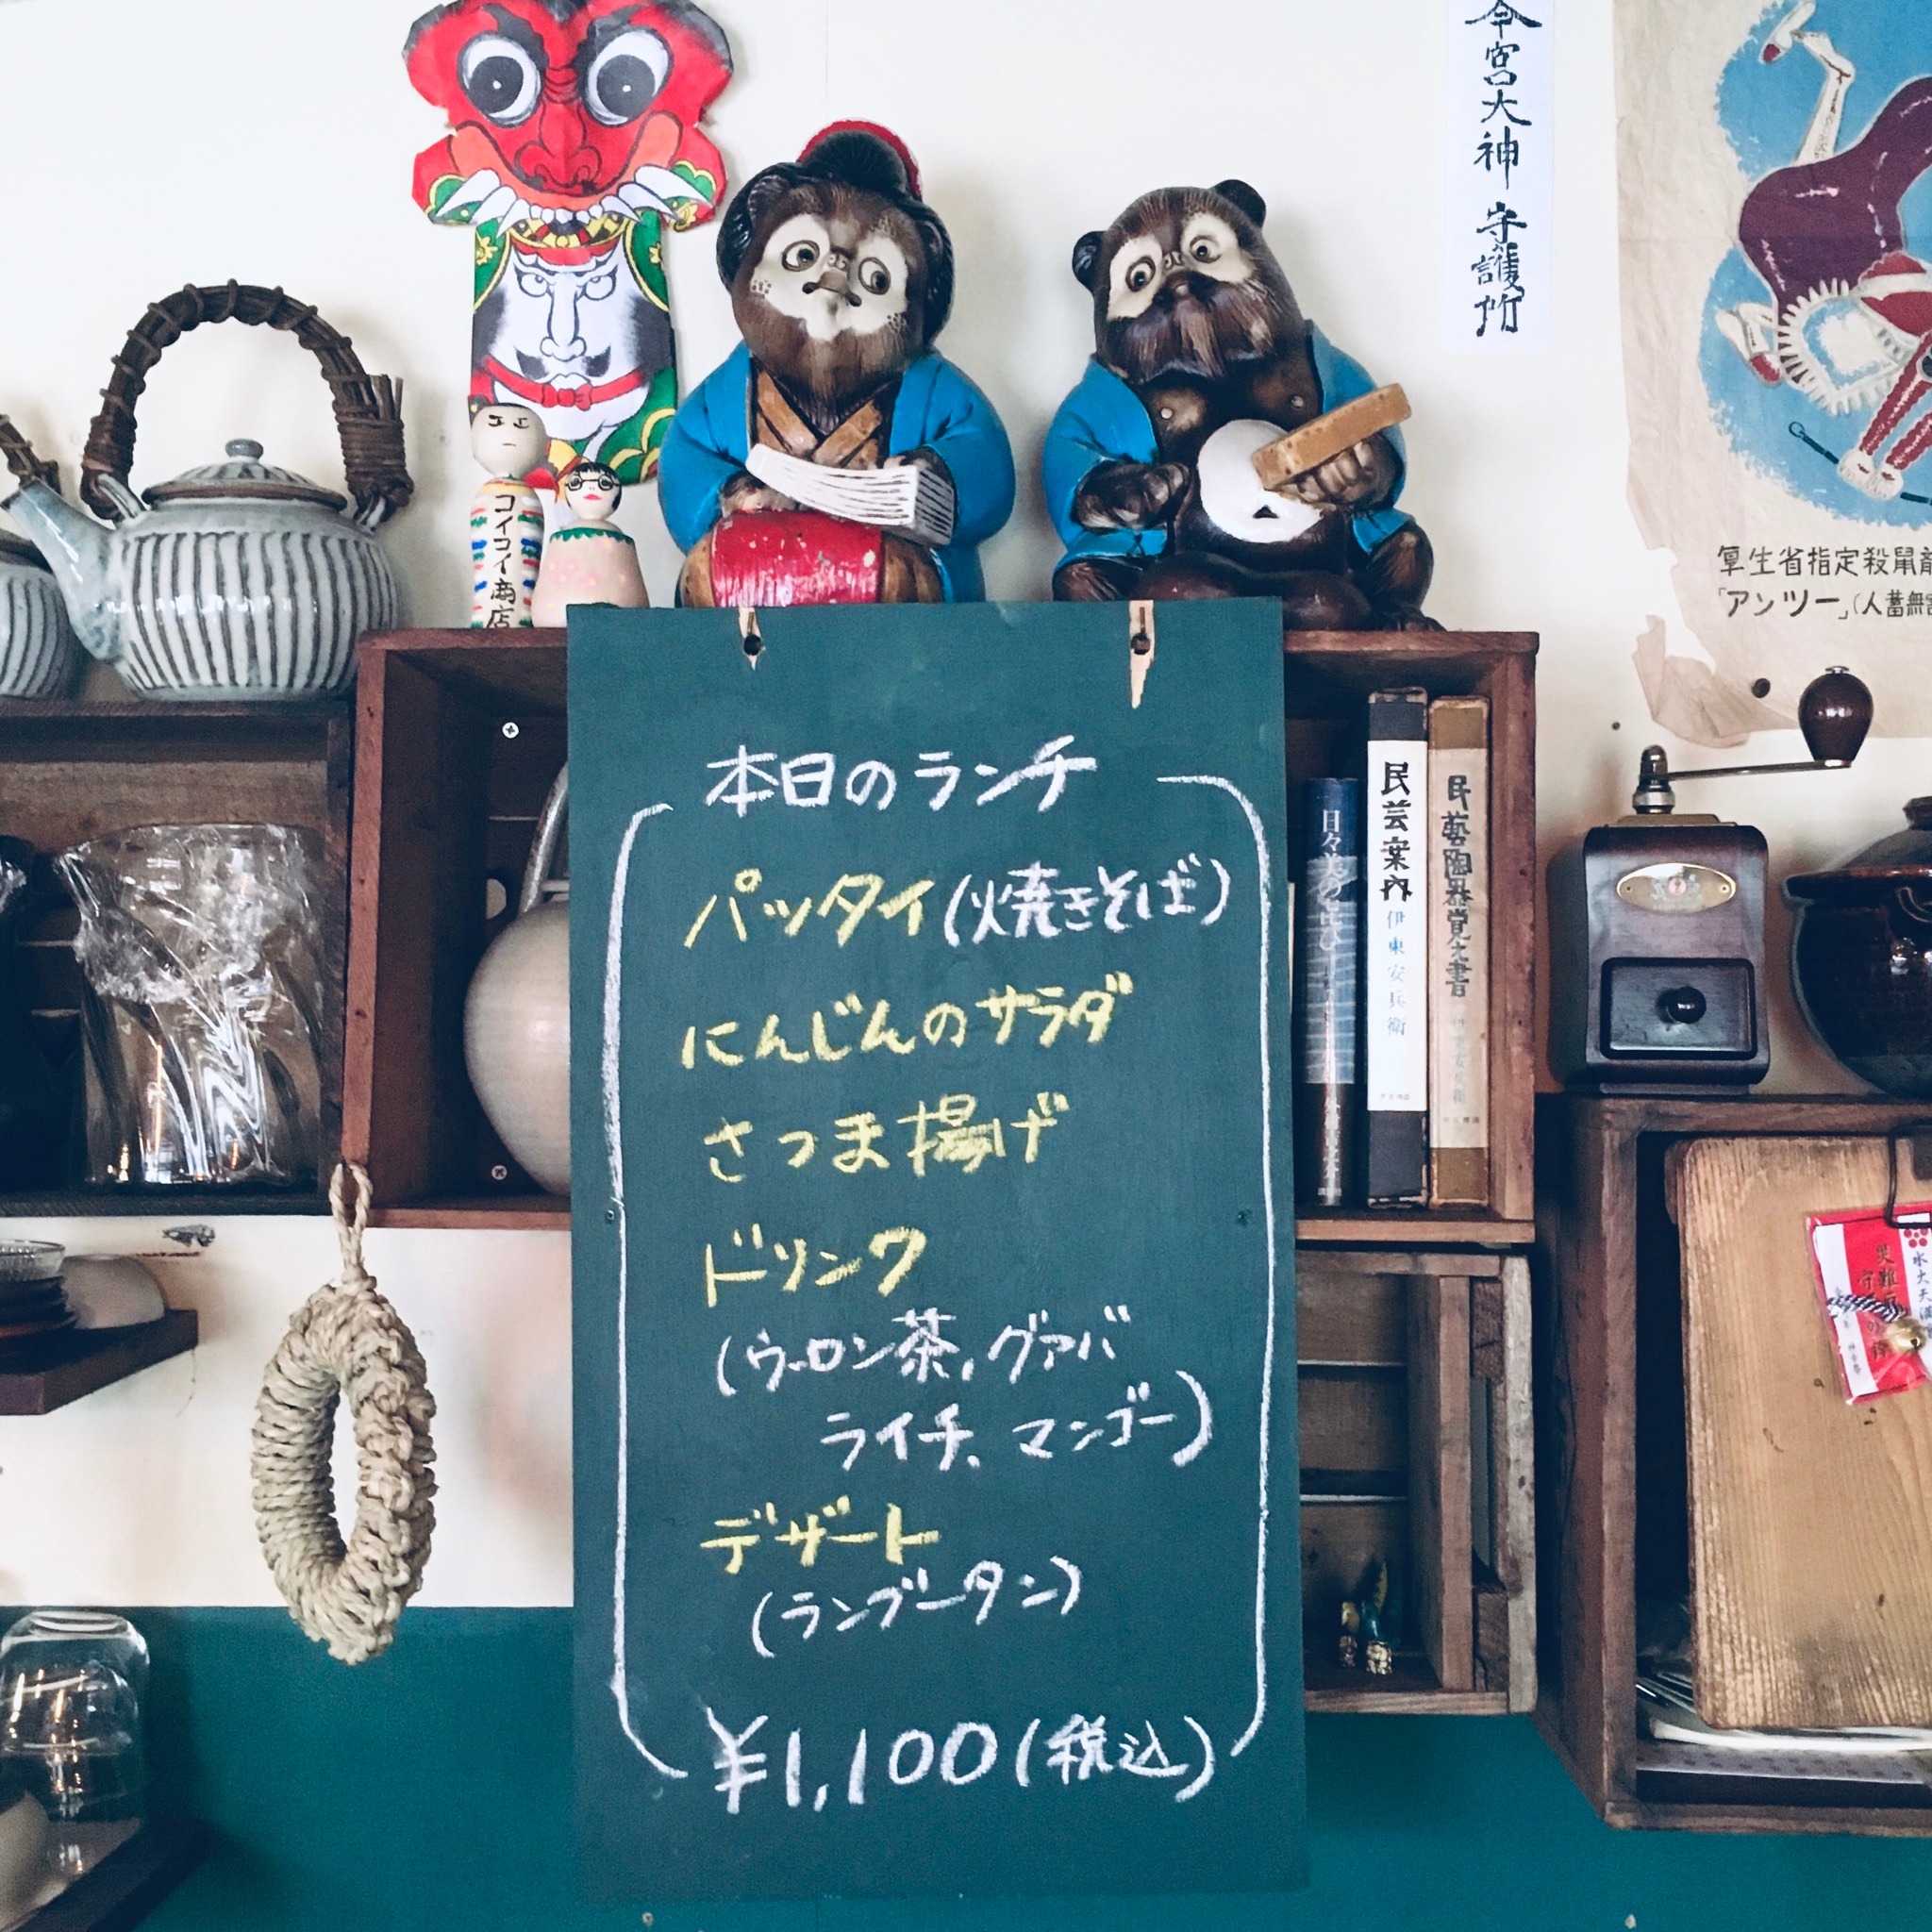 今宮大神 守護所
コイコイ商店
厚生省指定殺鼠
「アンツー」(人蓄無
本日のランチ
パッタイ(焼きそば)
にんじんのサラダ
さつま揚げ
ドリンク
(ウーロン茶,グァバ
ライチ、マンゴー)
デザート
(ランブータン)
¥1,100(税込)
民芸案内
伊東安兵衛
民藝陶器覚え書